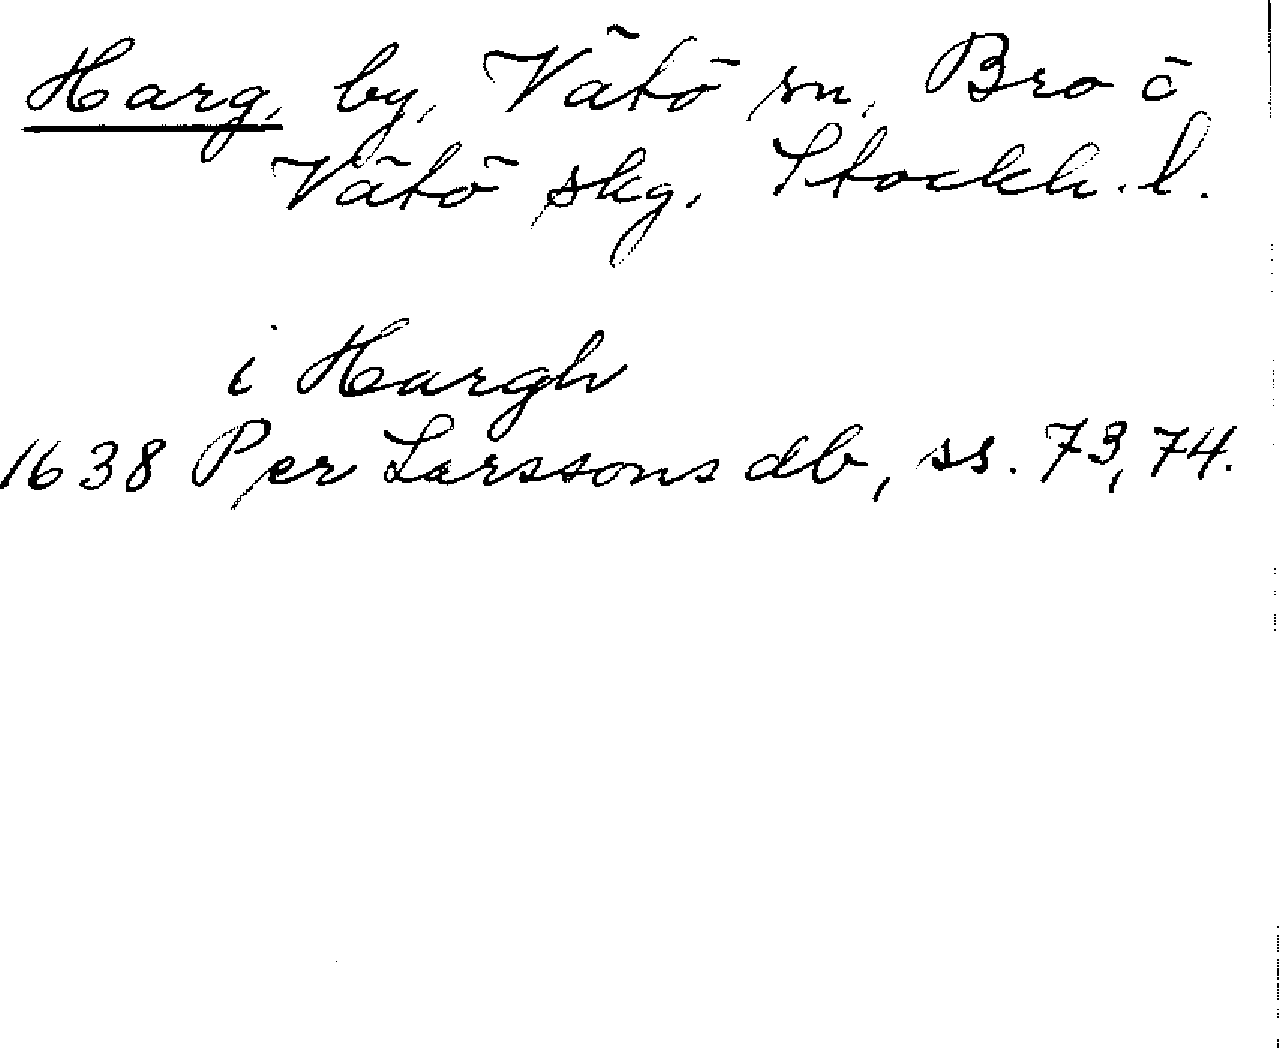 Harg, by, Vätö sn, Bro o
Vätö skg. Stockh. l.
i Hargh
1638 Per Larssons db, ss. 73, 74.